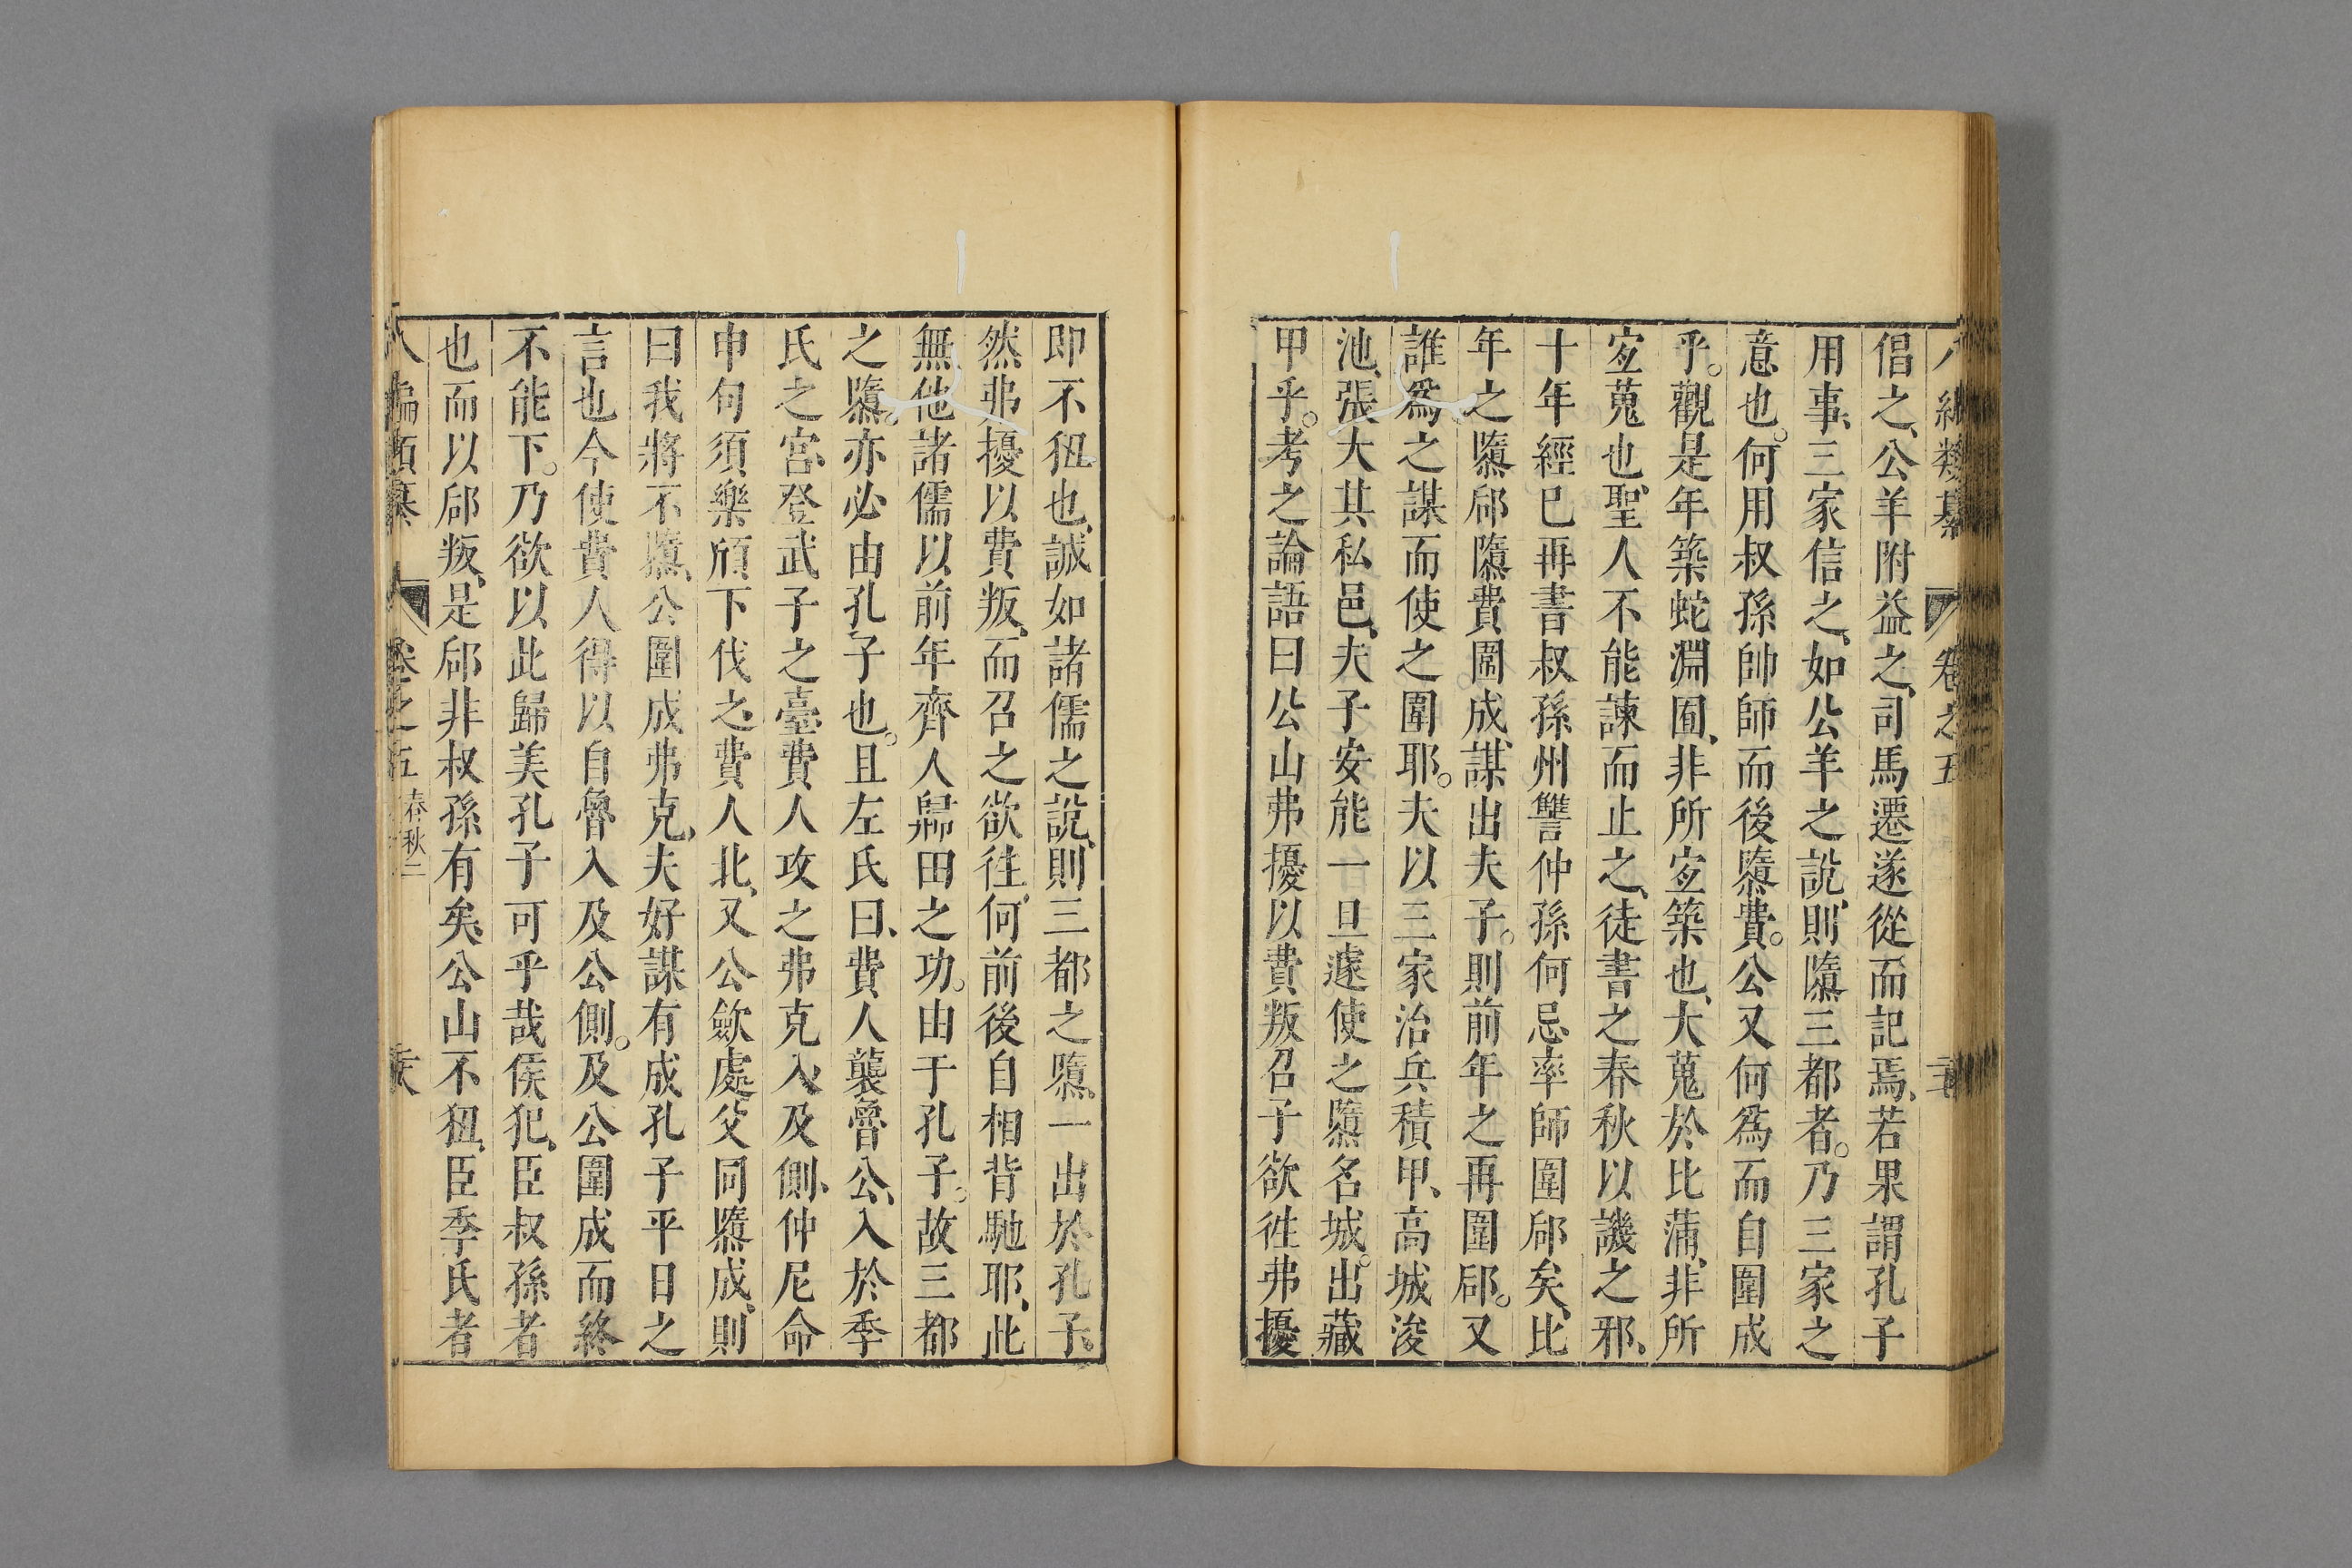 八編類纂 卷之五
倡之、公羊附益之、司馬遷遂從而記焉、若果謂孔子
用事、三家信之、如公羊之說、則隳三都者。乃三家之
意也。何用叔孫帥師而後隳費。公又何爲而自圍成
乎。觀是年築蛇淵囿、非所宐築也、大蒐於比蒲、非所
宐蒐也、聖人不能諫而止之、徒書之春秋以譏之邪、
十年經已再書叔孫州讐仲孫何忌率師圍郈矣、比
年之隳郈隳費圍成、謀出夫子。則前年之再圍郈。又
誰爲之謀而使之圍耶。夫以三家治兵積甲、高城浚
池、張大其私邑、夫子安能一旦遽使之隳名城。出藏
甲乎。考之論語曰公山弗擾以費叛召子欲徃弗擾
即不狃也、誠如諸儒之說、則三都之隳。一出於孔子、
然弗擾以費叛、而召之欲徃、何前後自相背馳耶、此
無他諸儒以前年齊人歸田之功。由于孔子。故三都
之隳。亦必由孔子也。且左氏曰、費人襲魯公、入於季
氏之宮、登武子之臺、費人攻之弗克入、及側、仲尼命
申句須樂頎下伐之、費人北、又公歛處父同隳成、則
曰我將不隳、公圍成弗克、夫好謀有成孔子平日之
言也今使費人得以自魯入及公側。及公圍成而終
不能下。乃欲以此歸美孔子可乎哉侯犯、臣叔孫者
也而以郈叛、是郈非叔孫有矣、公山不狃、臣季氏者
八編類纂 卷之五 春秋二